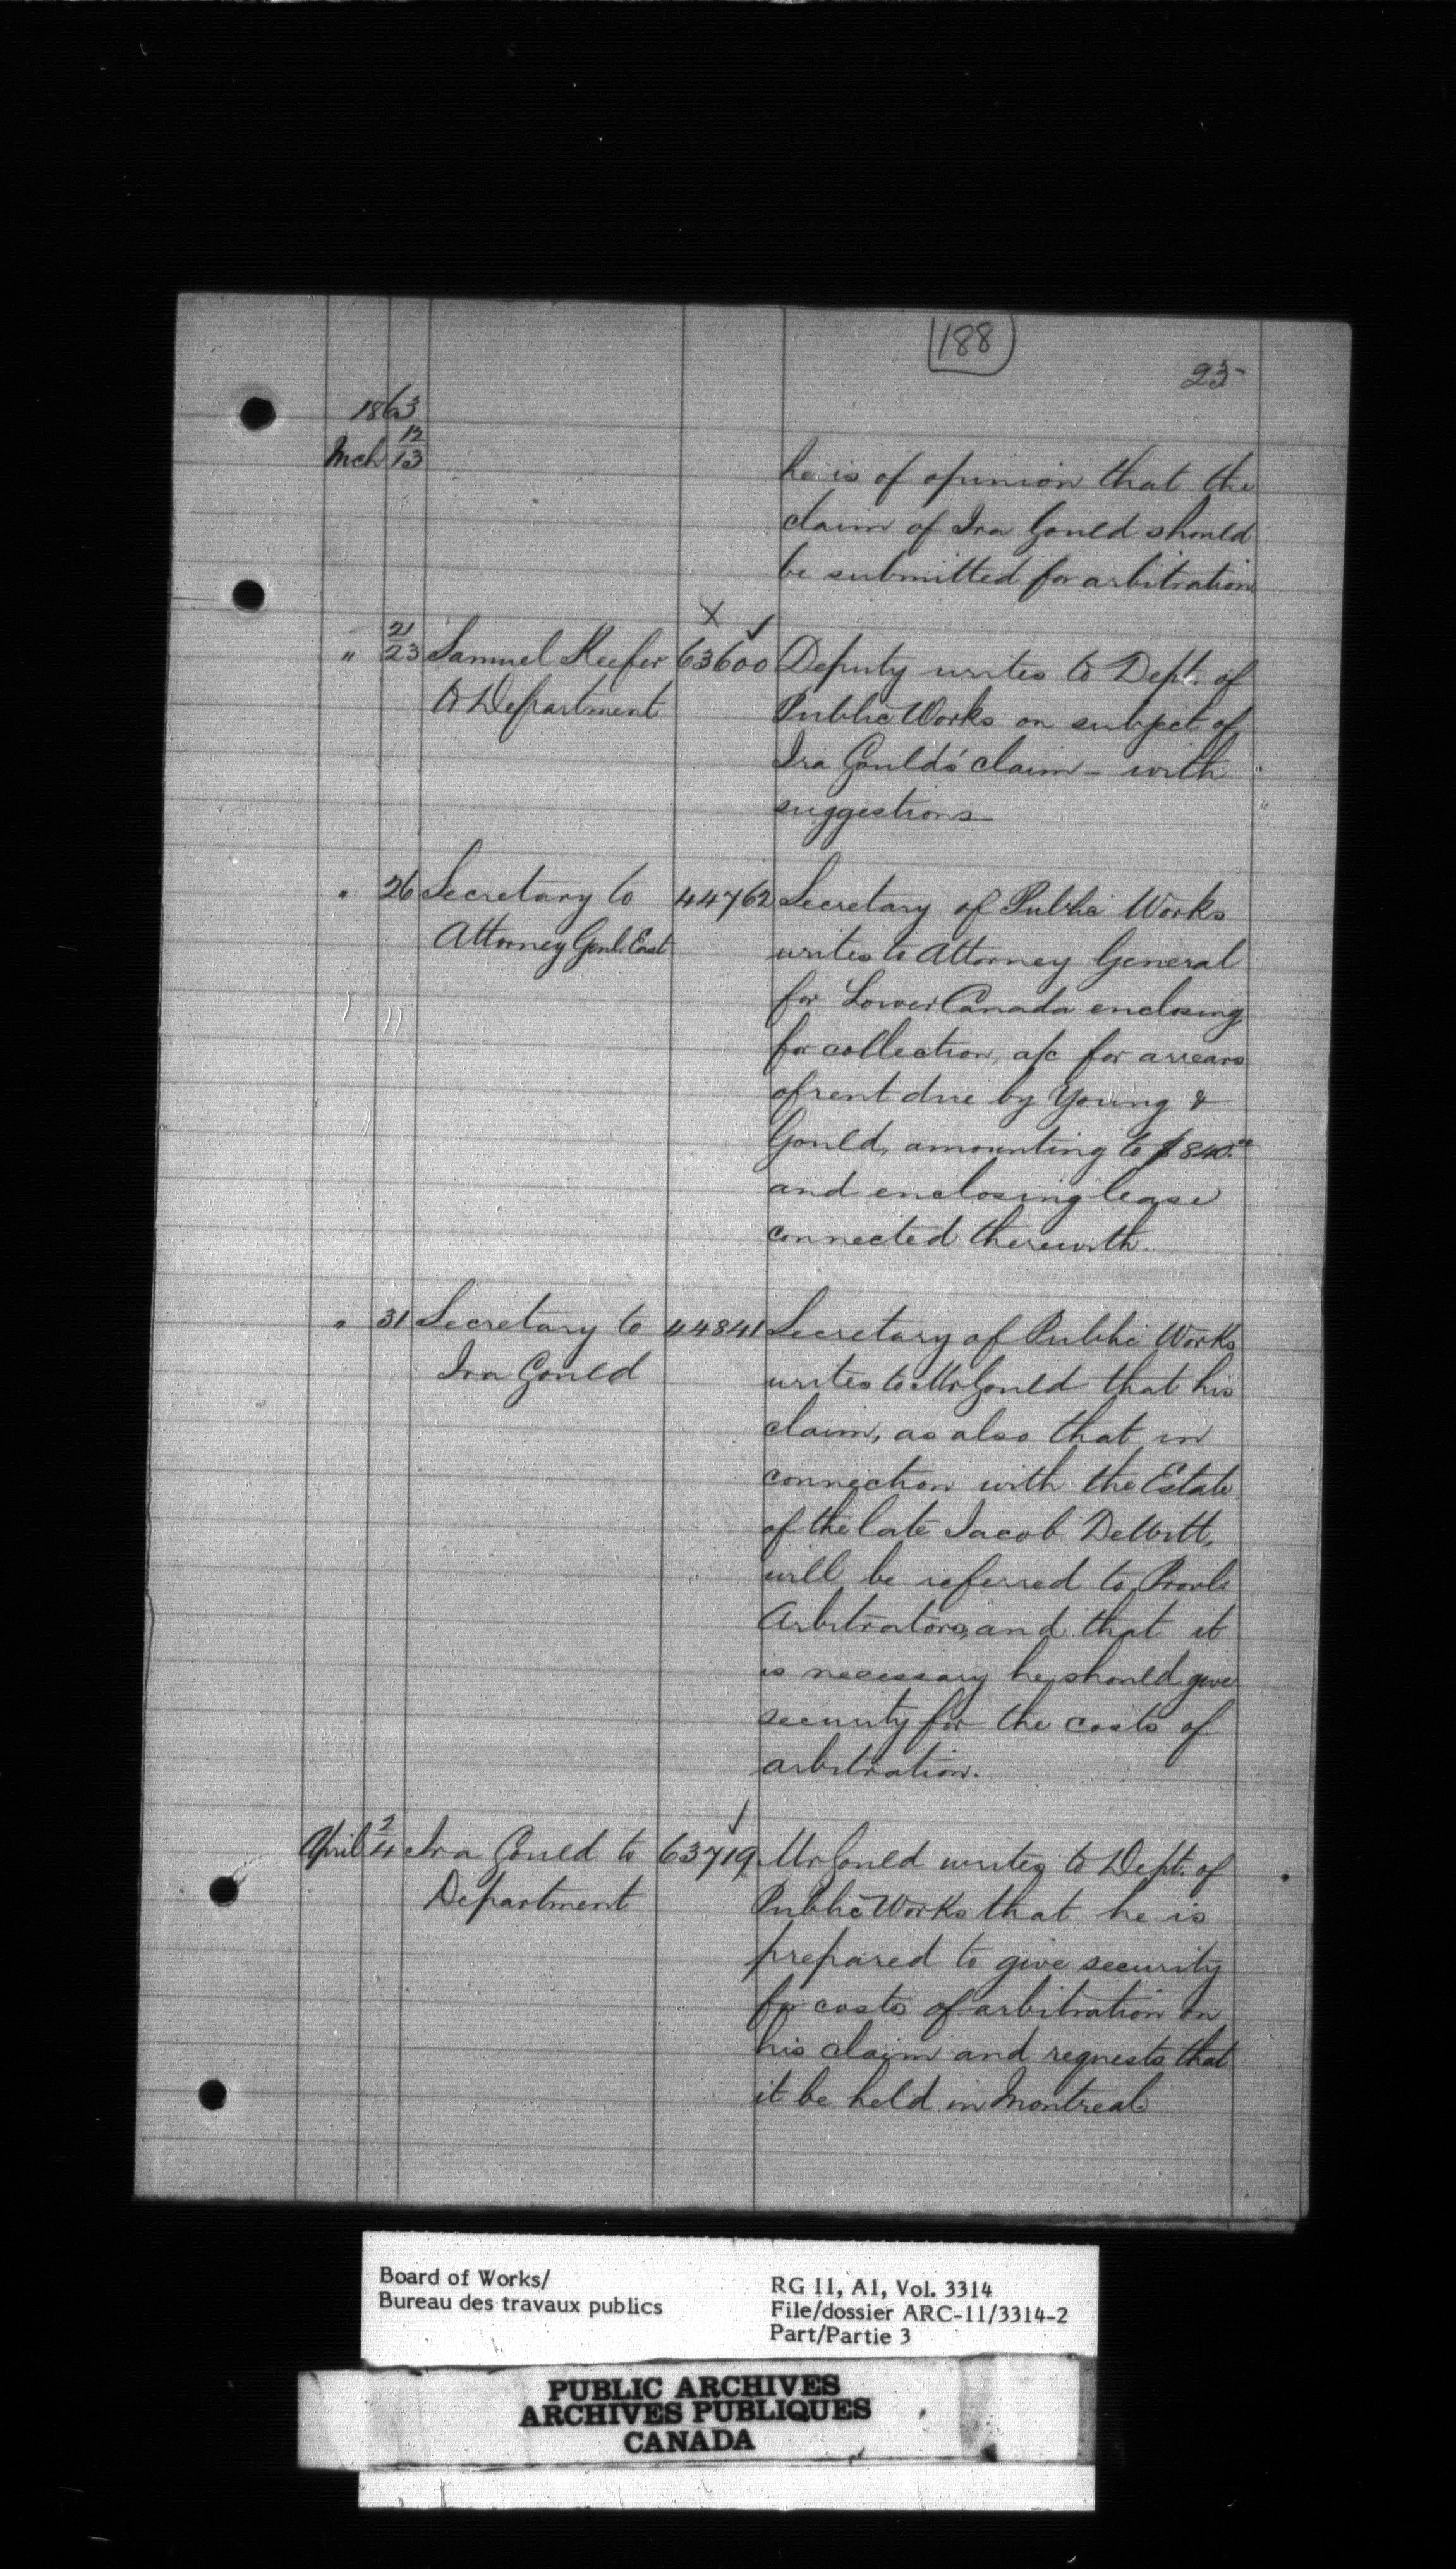 188
23
1863
Mch 12/13
he is of opinion that the
claim of Ira Gould should
be submitted for arbitration
" 21/23 Samuel Keefer 63600 Deputy writes to Dept. of
to Department Public Works on subject of
Ira Gould's claim - with
suggestions
" 26 Secretary to 44762 Secretary of Public Works
Attorney Genl. East writes to Attorney General
for Lower Canada enclosing
for collection, a/c for arrears
of rent due by Young &
Gould, amounting to $840.00
and enclosing lease
connected therewith.
" 31 Secretary to 44841 Secretary of Public Works
Ira Gould writes to Mr Gould that his
claim, as also that in
connection with the Estate
of the late Jacob DeWitt,
will be referred to Provl.
Arbitrators, and that it
is necessary he should give
security for the costs of
arbitration.
April 2/4 Ira Gould to 63719 Mr Gould writes to Dept. of
Department Public Works that he is
prepared to give security
for costs of arbitration on
his claim and requests that
it be held in Montreal.
Board of Works/
Bureau des travaux publics
RG 11, A1, Vol. 3314
File/dossier ARC-11/3314-2
Part/Partie 3
PUBLIC ARCHIVES
ARCHIVES PUBLIQUES
CANADA